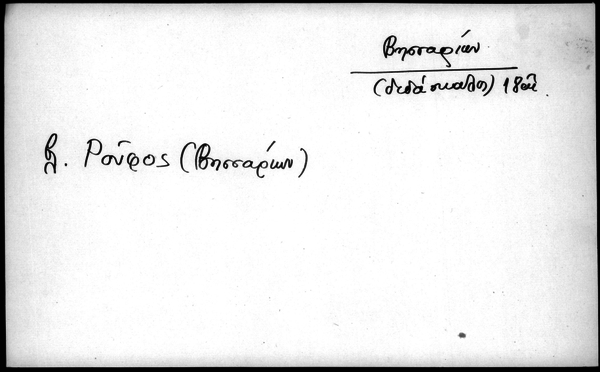 Βησσαρίων
(διδάσκαλος) 18
βλ. Ροῦφος (Βησσαρίων)